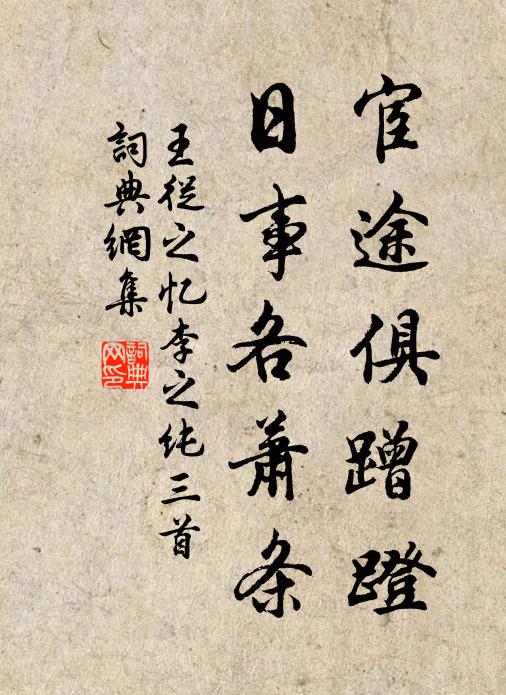 宦途俱蹭蹬
日事各萧条
王従之忆李之纯三首
詞典網集
詞典
网印